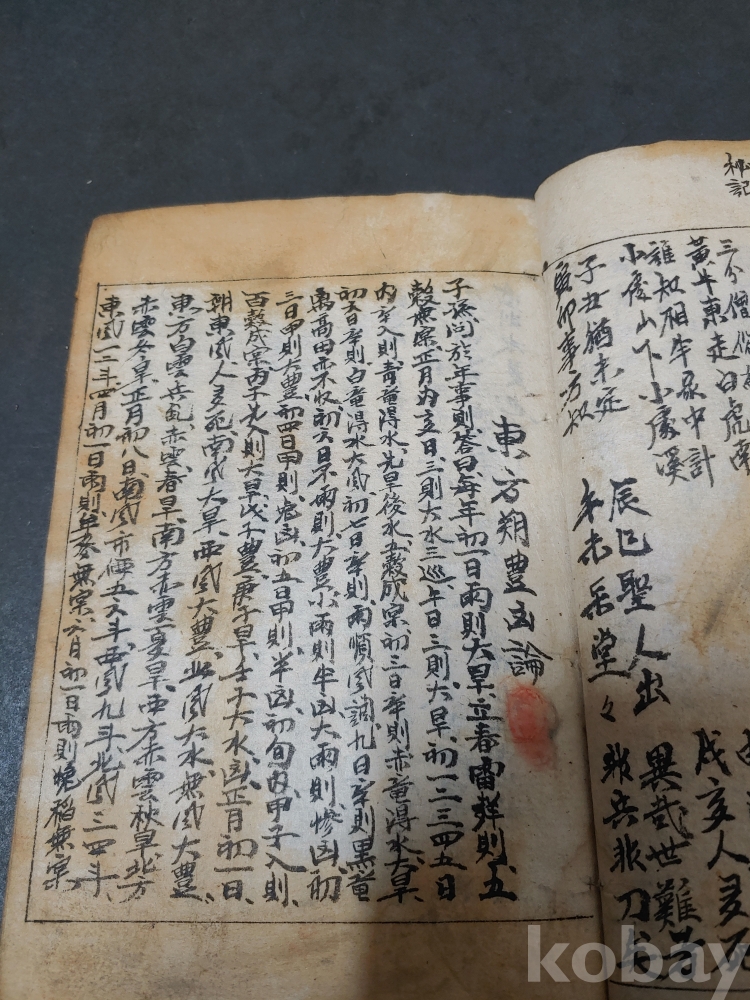 神記
三分僧俗
黃牛東走白虎南
誰知相牛哀中計
小處山下小處溪
子丑猶未定
寅卯事方知
辰巳聖人出
午未樂堂々
戌亥人多死
異哉世難
非兵非刀
東方朔豊凶論
子孫問於年事則答曰每年初一日雨則大旱立春雷鮮則五
穀無宗正月內亥日三則大水三巡午日三則大旱初一二三四五日
內辛入則靑竜得水先旱後水五穀成宗初三日辛則赤竜得水大旱
初六日辛則白竜得水大風初七日辛則雨順風調九日辛則黑竜
禹高田亦不收初六日不雨則大豊小雨則半凶大雨則慘凶初
三日甲則大豊初四日甲則晩凶初五日甲則半凶初旬內甲子入則
百穀成宗丙子先入則大旱戊子豊庚子旱壬子大水凶正月初一日
朝東風人多死南風大旱西風大豊北風大水無風大豊
東方白雲兵亂赤雲春旱南方赤雲夏旱西方赤雲秋旱北方
赤雲冬旱正月初八日南風市価五六斗西風九斗北風三四斗
東風一二斗四月初一日雨則牟麥無宗六月初一日雨則晩稻無宗
kobay